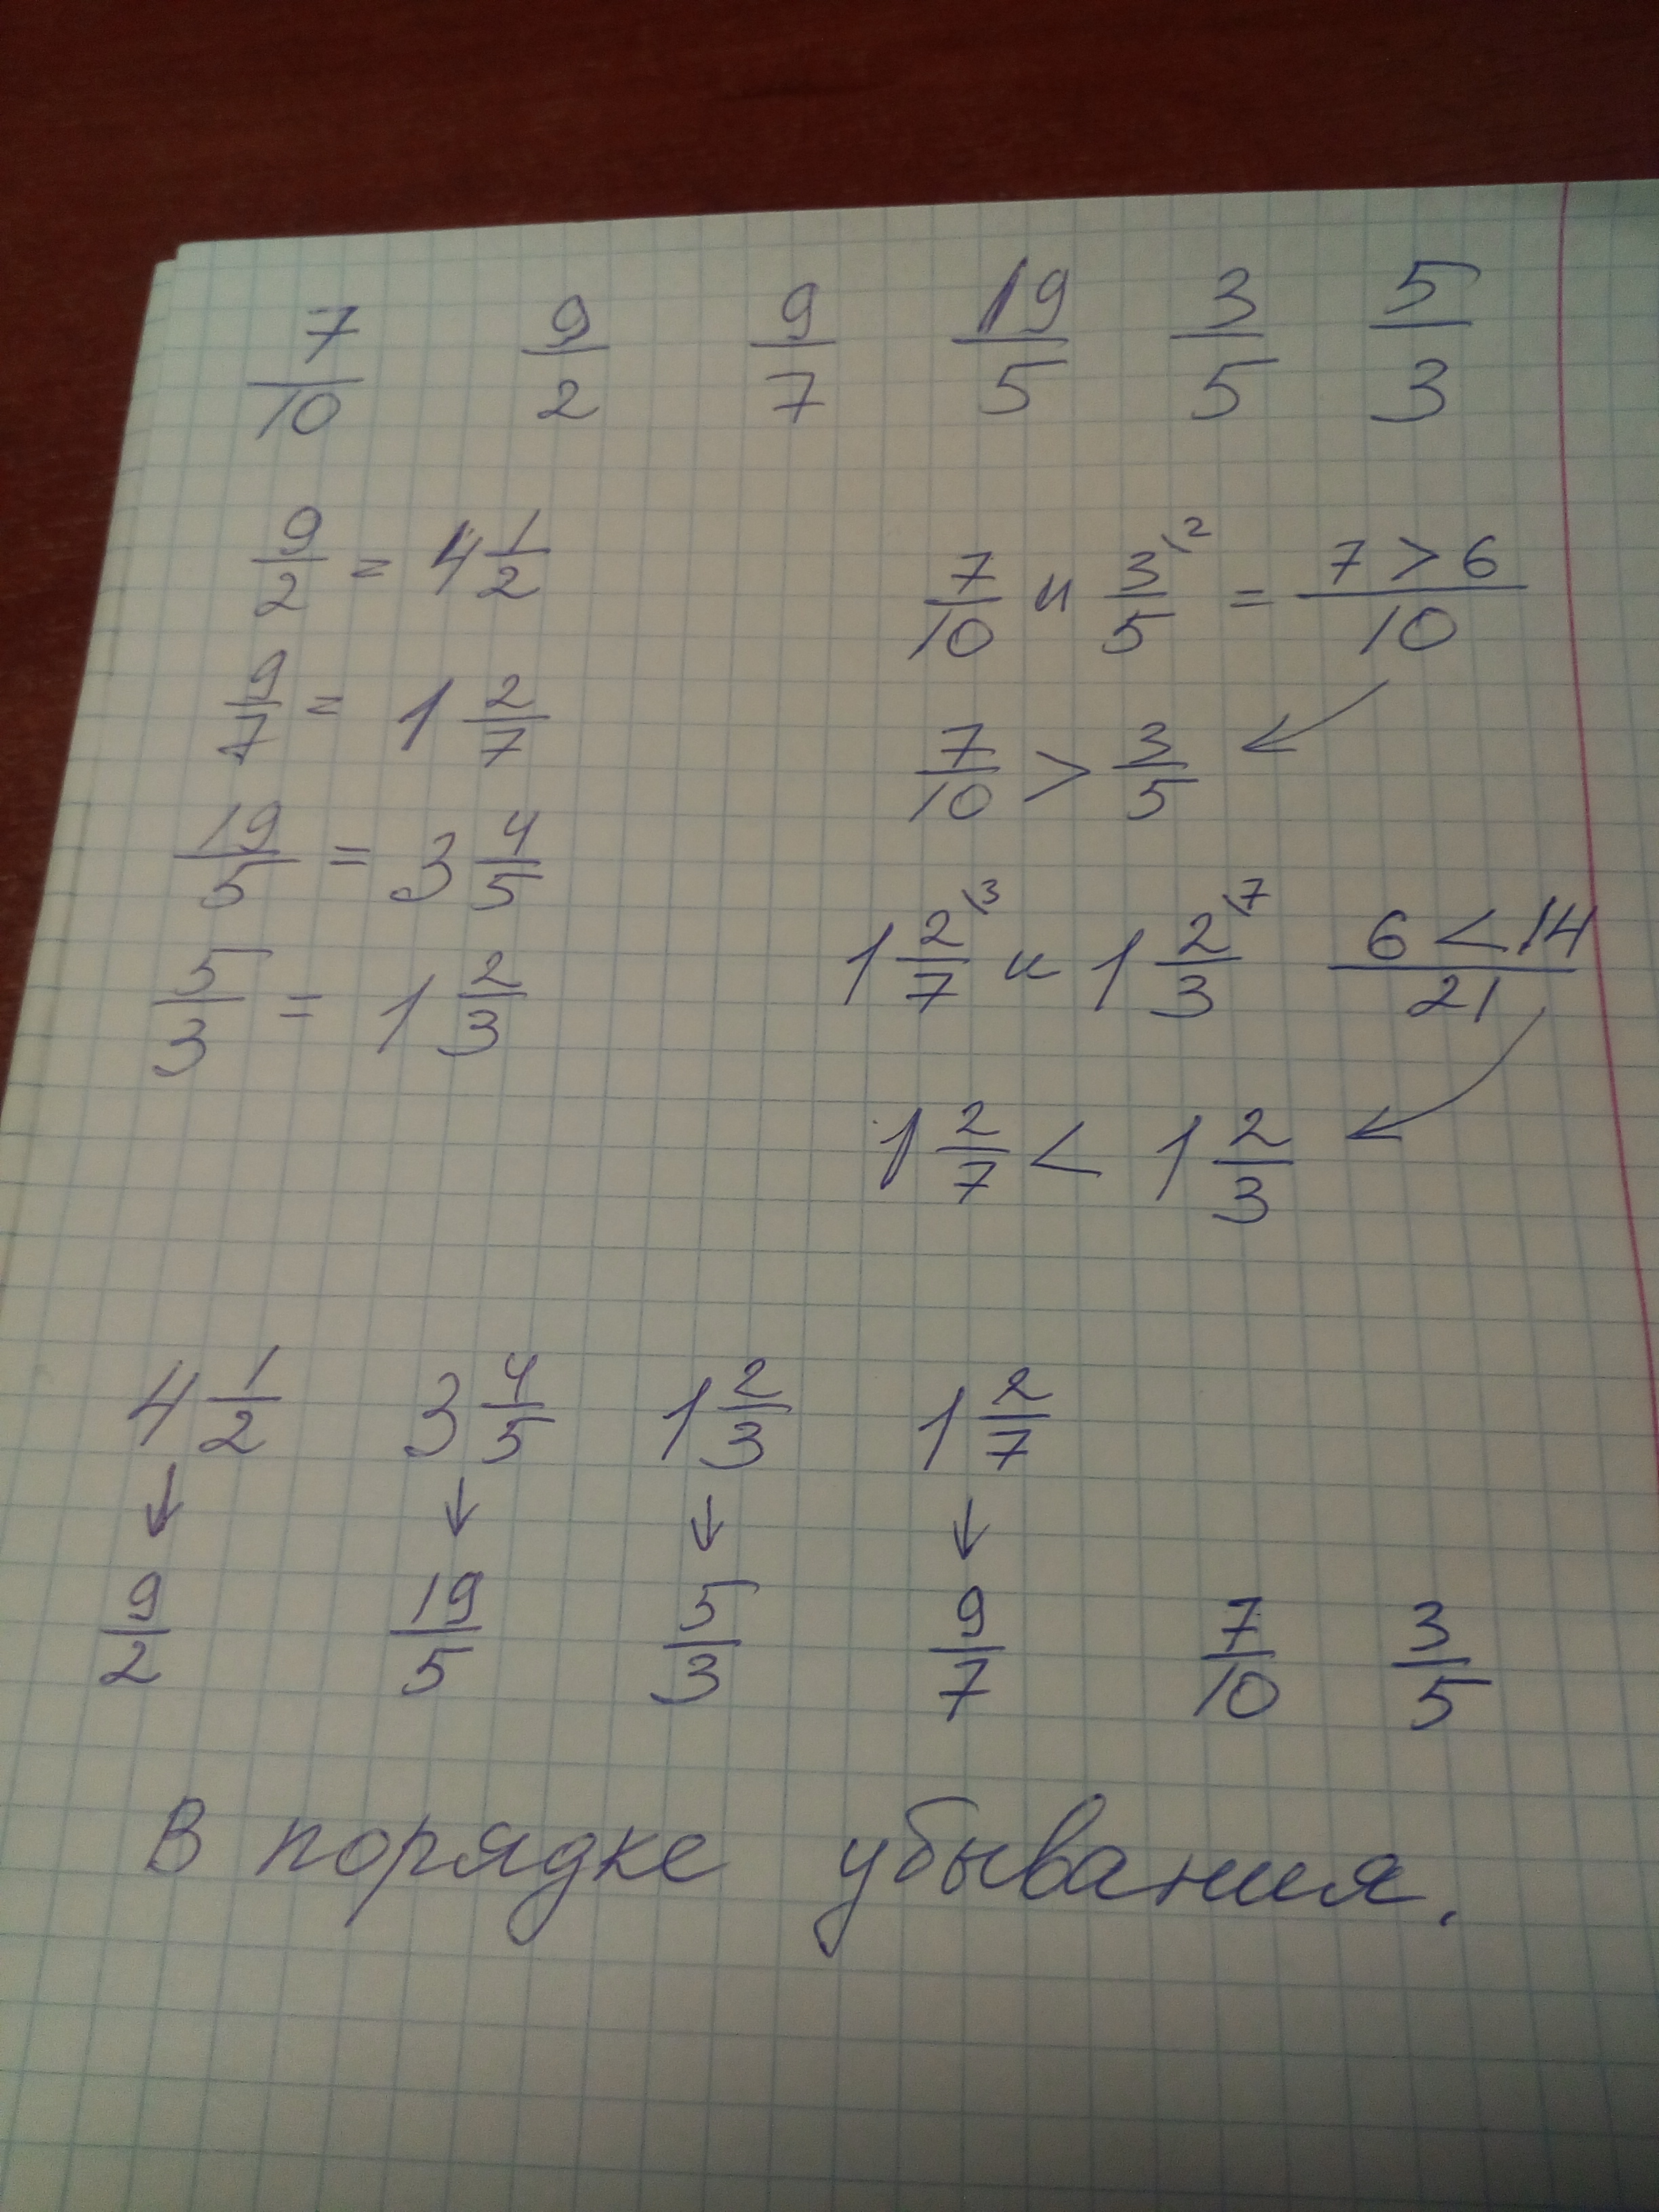 7/10 9/2 9/7 19/5 3/5 5/3
9/2 = 4 1/2
9/7 = 1 2/7
19/5 = 3 4/5
5/3 = 1 2/3
7/10 и 3\2/5 = 7 > 6/10
7/10 > 3/5
1 2\3/7 и 1 2\7/3 6 < 14/21
1 2/7 < 1 2/3
4 1/2 3 4/5 1 2/3 1 2/7
↓ ↓ ↓ ↓
9/2 19/5 5/3 9/7 7/10 3/5
В порядке убывания.